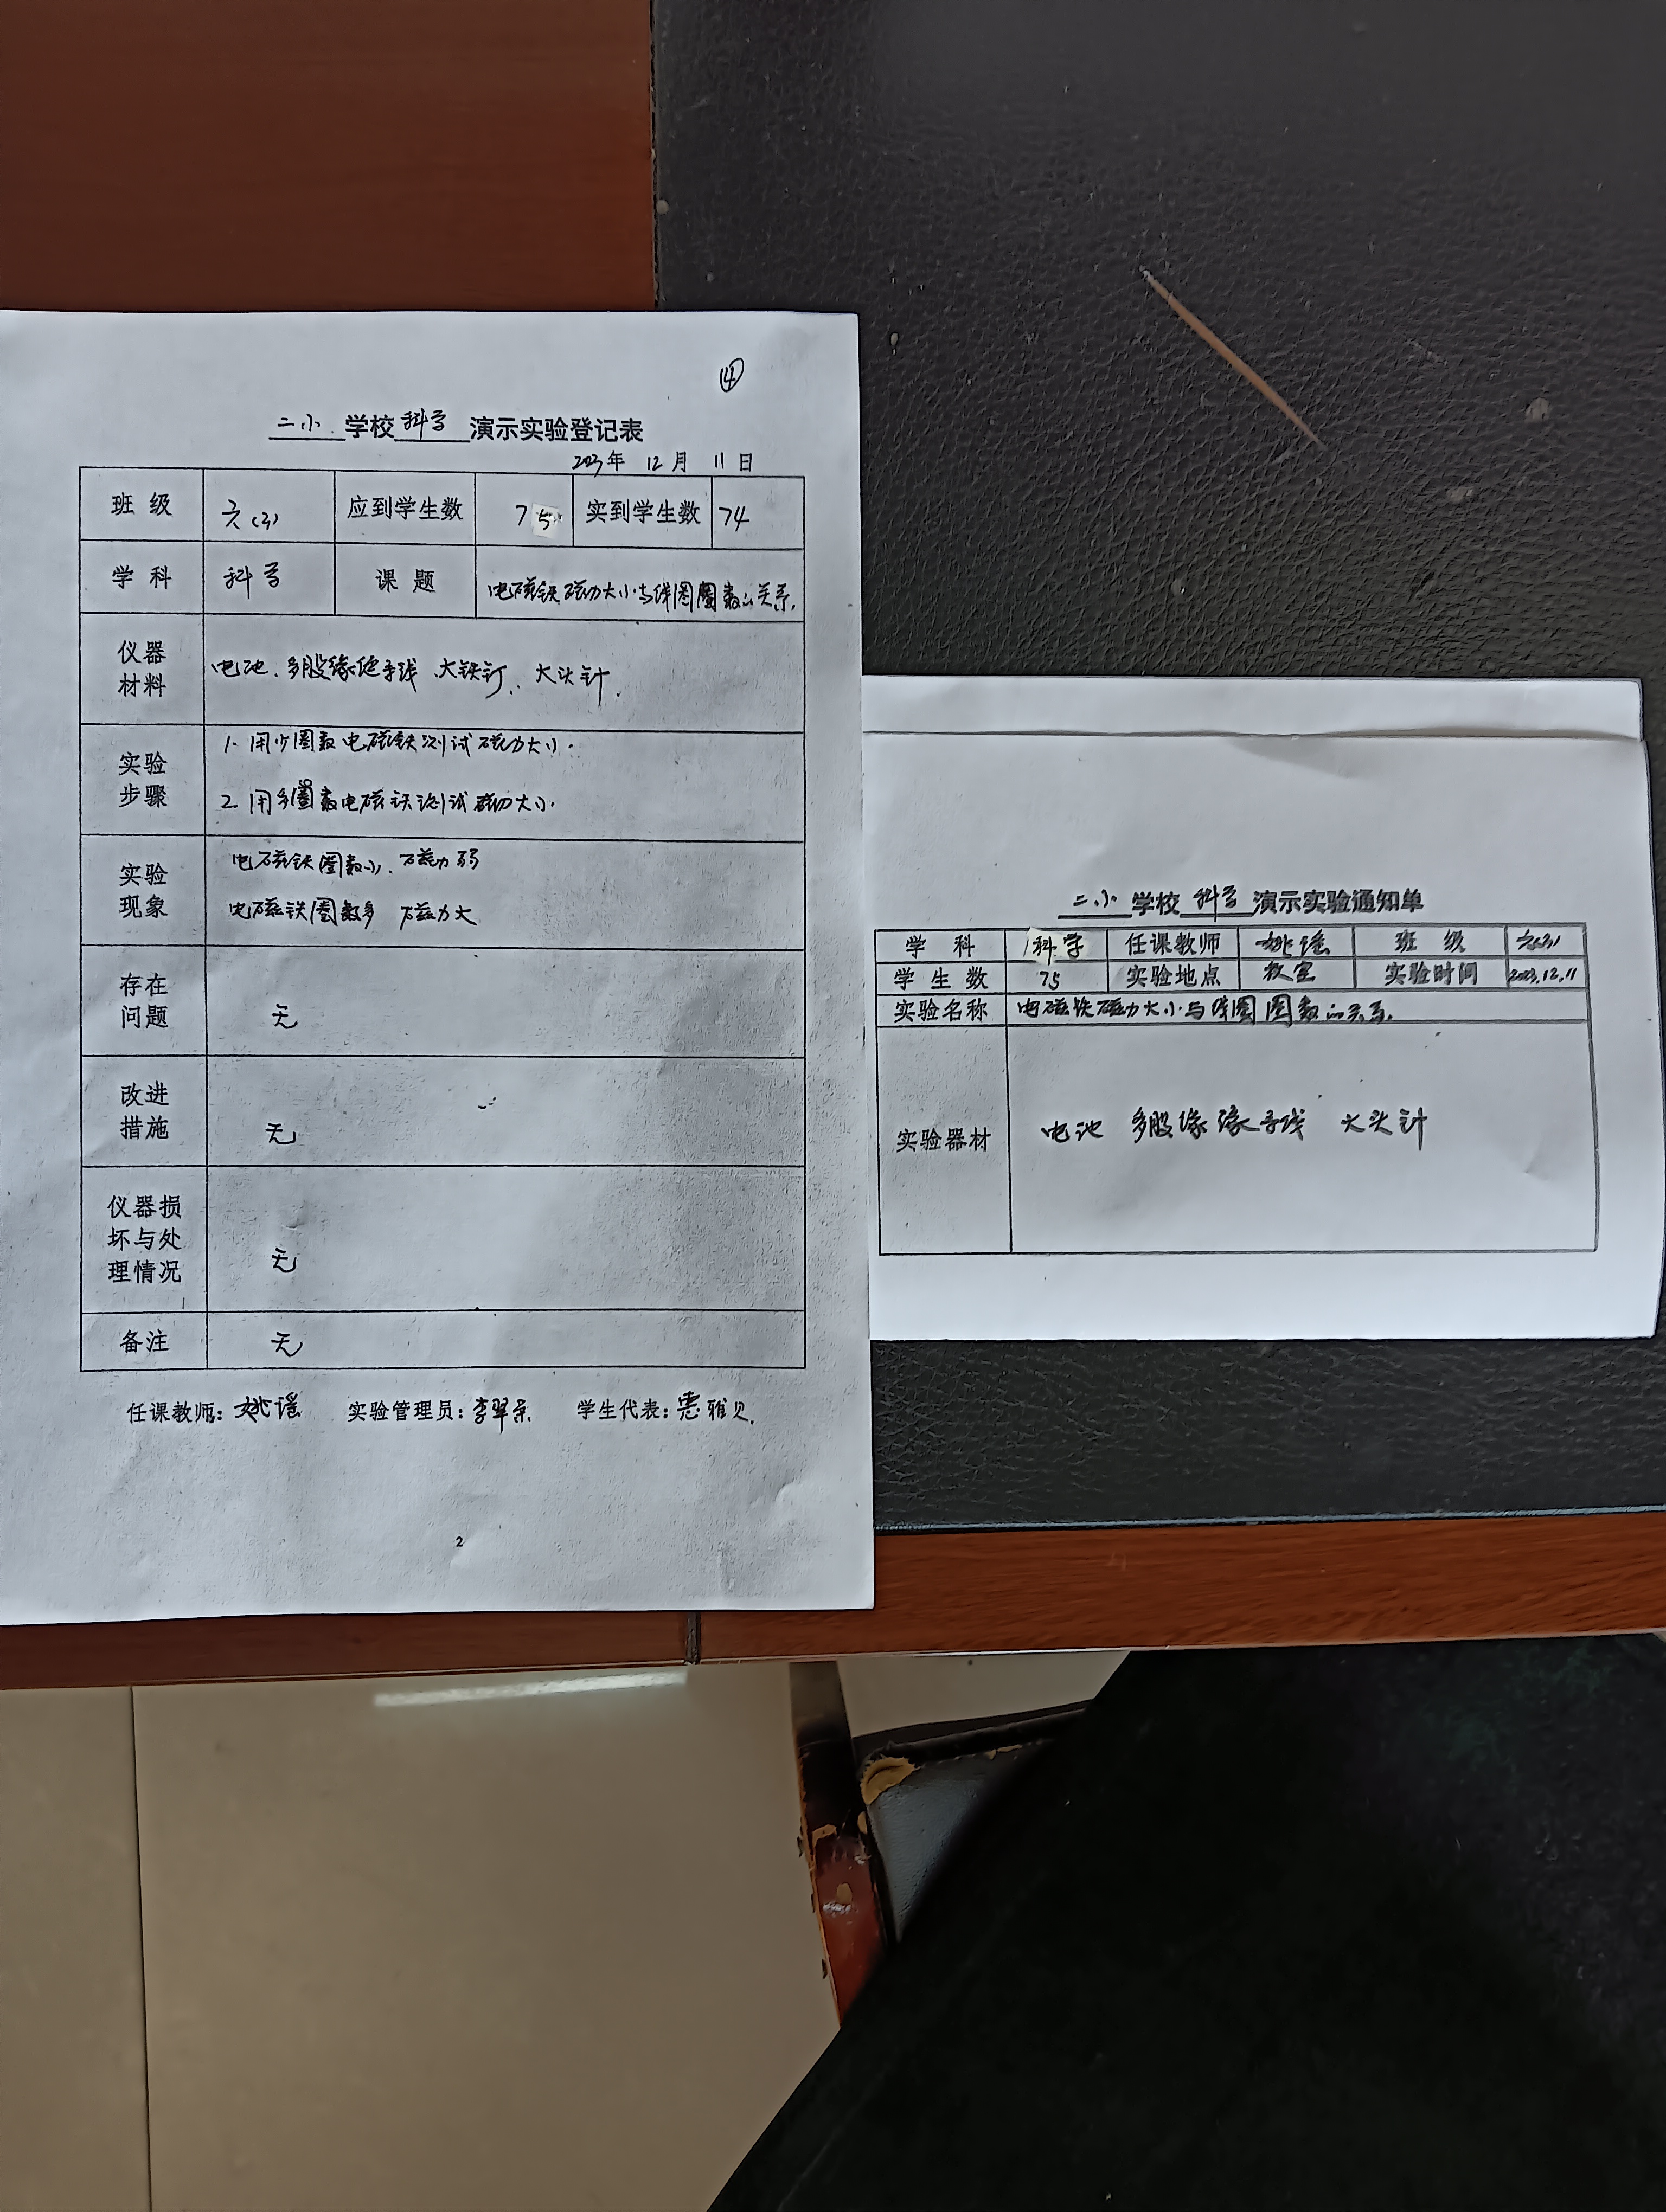 ④
二小 学校 科学 演示实验登记表
2023年 12月 11日
班 级 六(3) 应到学生数 75 实到学生数 74
学 科 科学 课 题 电磁铁磁力大小与线圈圈数的关系.
仪器材料 电池、多股缘绝导线、大铁钉、大头针.
实验步骤 1. 用少圈数电磁铁测试磁力大小.
2. 用多圈数电磁铁测试磁力大小.
实验现象 电磁铁圈数少、磁力弱
电磁铁圈数多 磁力大
存在问题 无
改进措施 无
仪器损坏与处理情况 无
备注 无
任课教师: 姚瑶 实验管理员: 李翠 学生代表: 惠雅贝.
2
二小 学校 科学 演示实验通知单
学 科 科学 任课教师 姚瑶 班 级 六(3)
学 生 数 75 实验地点 教室 实验时间 2023.12.11
实验名称 电磁铁磁力大小与线圈圈数的关系.
实验器材 电池 多股缘缘导线 大头针